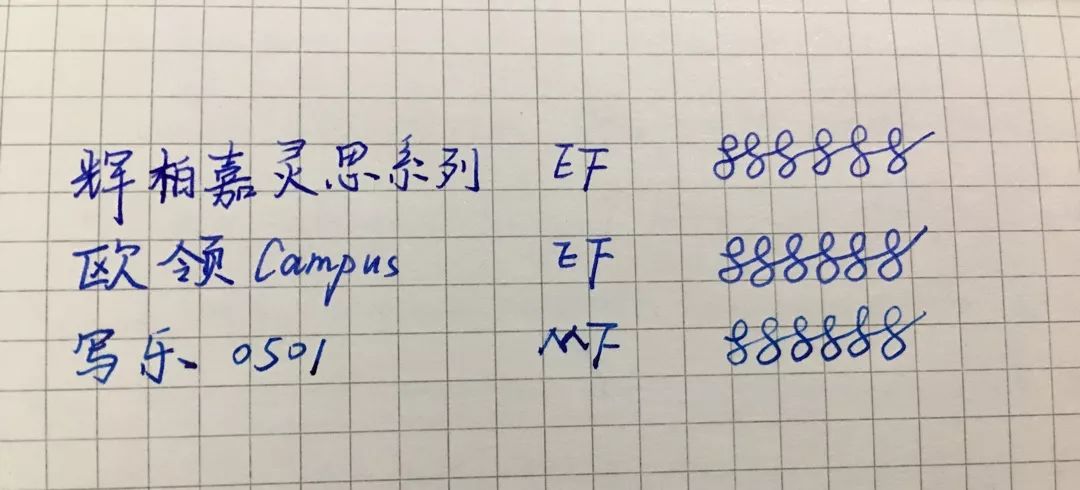 辉柏嘉灵思系列 EF 888888
欧领 Campus EF 888888
写乐 0501 MF 888888